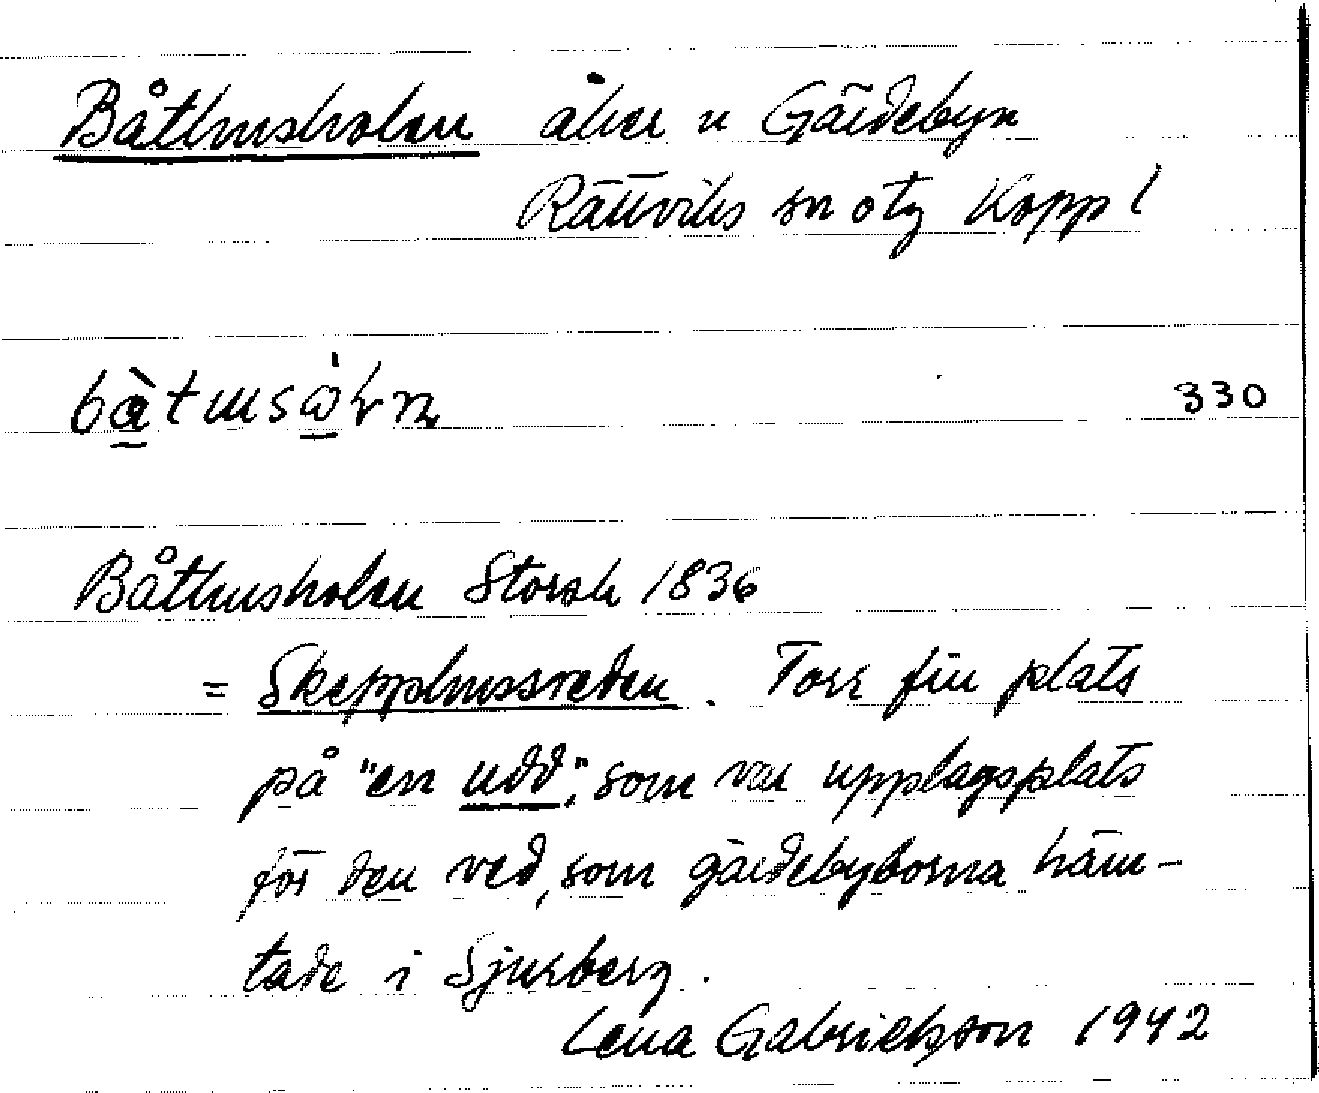 Båthusholen åker u Gärdebyn
Rättviks sn o tg Kopp l
båtusòɷln
330
Båthusholen Storsk 1836
= Skepphussveden. Torr fin plats
på "en udd", som var upplagsplats
för den ved, som gärdebyborna häm-
tade i Sjurberg.
Lena Gabrielsson 1942